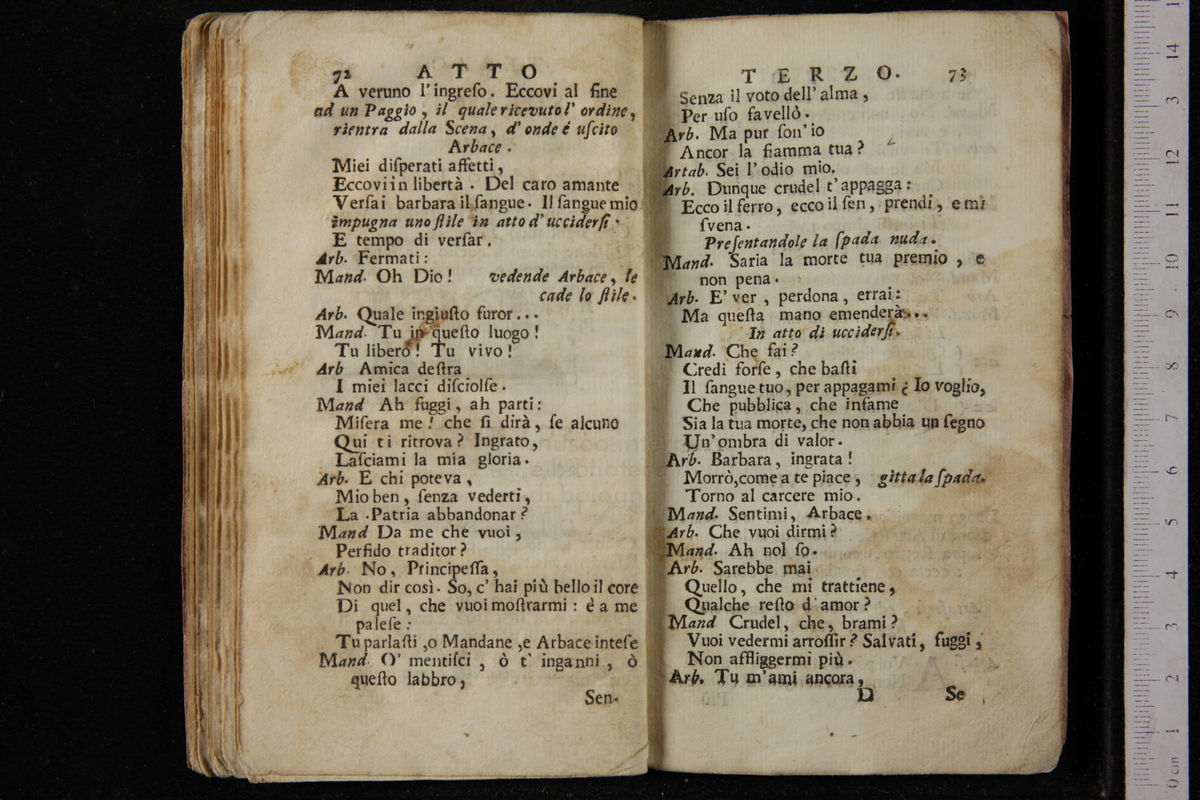 72 ATTO
A veruno l'ingreſo. Eccovi al fine
ad un Paggio, il quale ricevuto l' ordine,
rientra dalla Scena, d' onde é uſcito
Arbace.
Miei diſperati affetti,
Eccovi in libertà. Del caro amante
Verſai barbara il ſangue. Il ſangue mio
impugna uno ſtile in atto d' ucciderſi.
E tempo di verſar.
Arb. Fermati:
Mand. Oh Dio! vedende Arbace, le
cade lo ſtile.
Arb. Quale ingiuſto furor...
Mand. Tu in queſto luogo!
Tu libero! Tu vivo!
Arb Amica deſtra
I miei lacci diſciolſe.
Mand Ah fuggi, ah parti:
Miſera me! che ſi dirà, ſe alcuno
Qui ti ritrova? Ingrato,
Laſciami la mia gloria.
Arb. E chi poteva,
Mio ben, ſenza vederti,
La .Patria abbandonar?
Mand Da me che vuoi,
Perfido traditor?
Arb. No, Principeſſa,
Non dir così. So, c' hai più bello il core
Di quel, che vuoi moſtrarmi: è a me
paleſe:
Tu parlaſti ,o Mandane ,e Arbace inteſe
Mand. O' mentiſci, ò t' inganni, ò
queſto labbro,
Sen-
TERZO. 73
Senza il voto dell' alma,
Per uſo favellò.
Arb. Ma pur ſon' io
Ancor la fiamma tua?
Artab. Sei l' odio mio.
Arb. Dunque crudel t' appagga:
Ecco il ferro, ecco il ſen, prendi, e mi
ſvena.
Preſentandole la ſpada nuda.
Mand. Saria la morte tua premio, e
non pena.
Arb. E' ver, perdona, errai:
Ma queſta mano emenderà...
In atto di ucciderſi.
Mand. Che fai?
Credi forſe, che baſti
Il ſangue tuo, per appagami ¿ Io voglio,
Che pubblica, che infame
Sia la tua morte, che non abbia un ſegno
Un' ombra di valor.
Arb. Barbara, ingrata!
Morrò,come a te piace, gitta la ſpada.
Torno al carcere mio.
Mand. Sentimi, Arbace.
Arb. Che vuoi dirmi?
Mand. Ah nol ſo.
Arb. Sarebbe mai
Quello, che mi trattiene,
Qualche reſto d' amor?
Mand Crudel, che, brami?
Vuoi vedermi arroſſir? Salvati, fuggi,
Non affliggermi più.
Arb. Tu m'ami ancora,
D Se